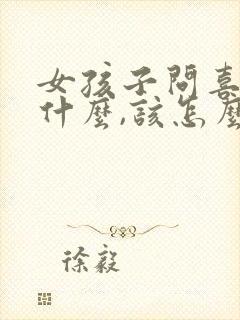 女孩子問喜
什麼,該怎麼
徐毅